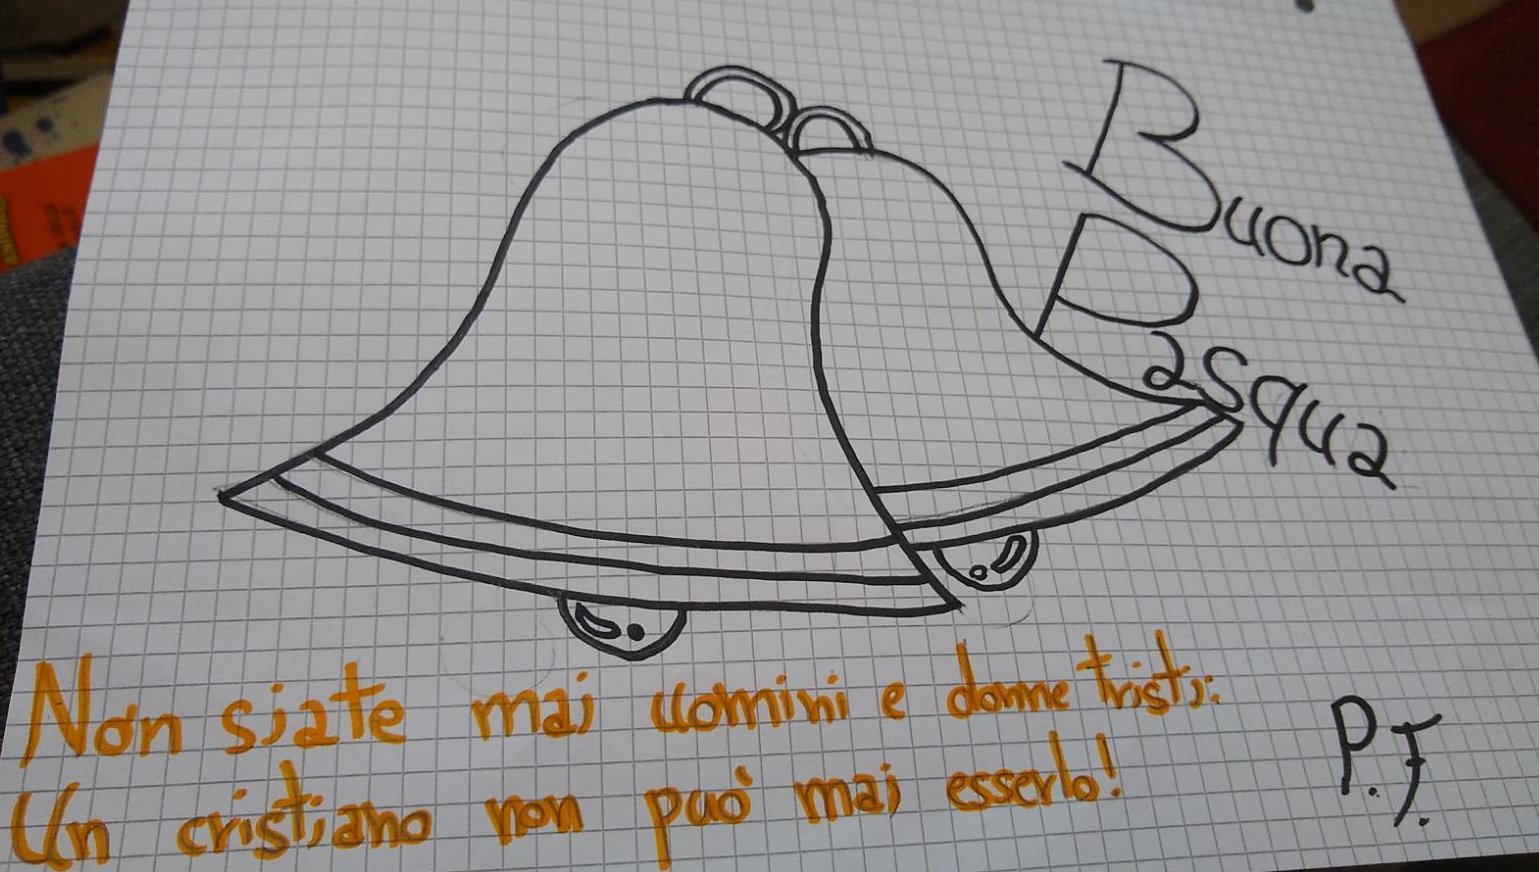 Buona
Pasqua
Non siate mai uomini e donne tristi:
Un cristiano non può mai esserlo!
P.F.